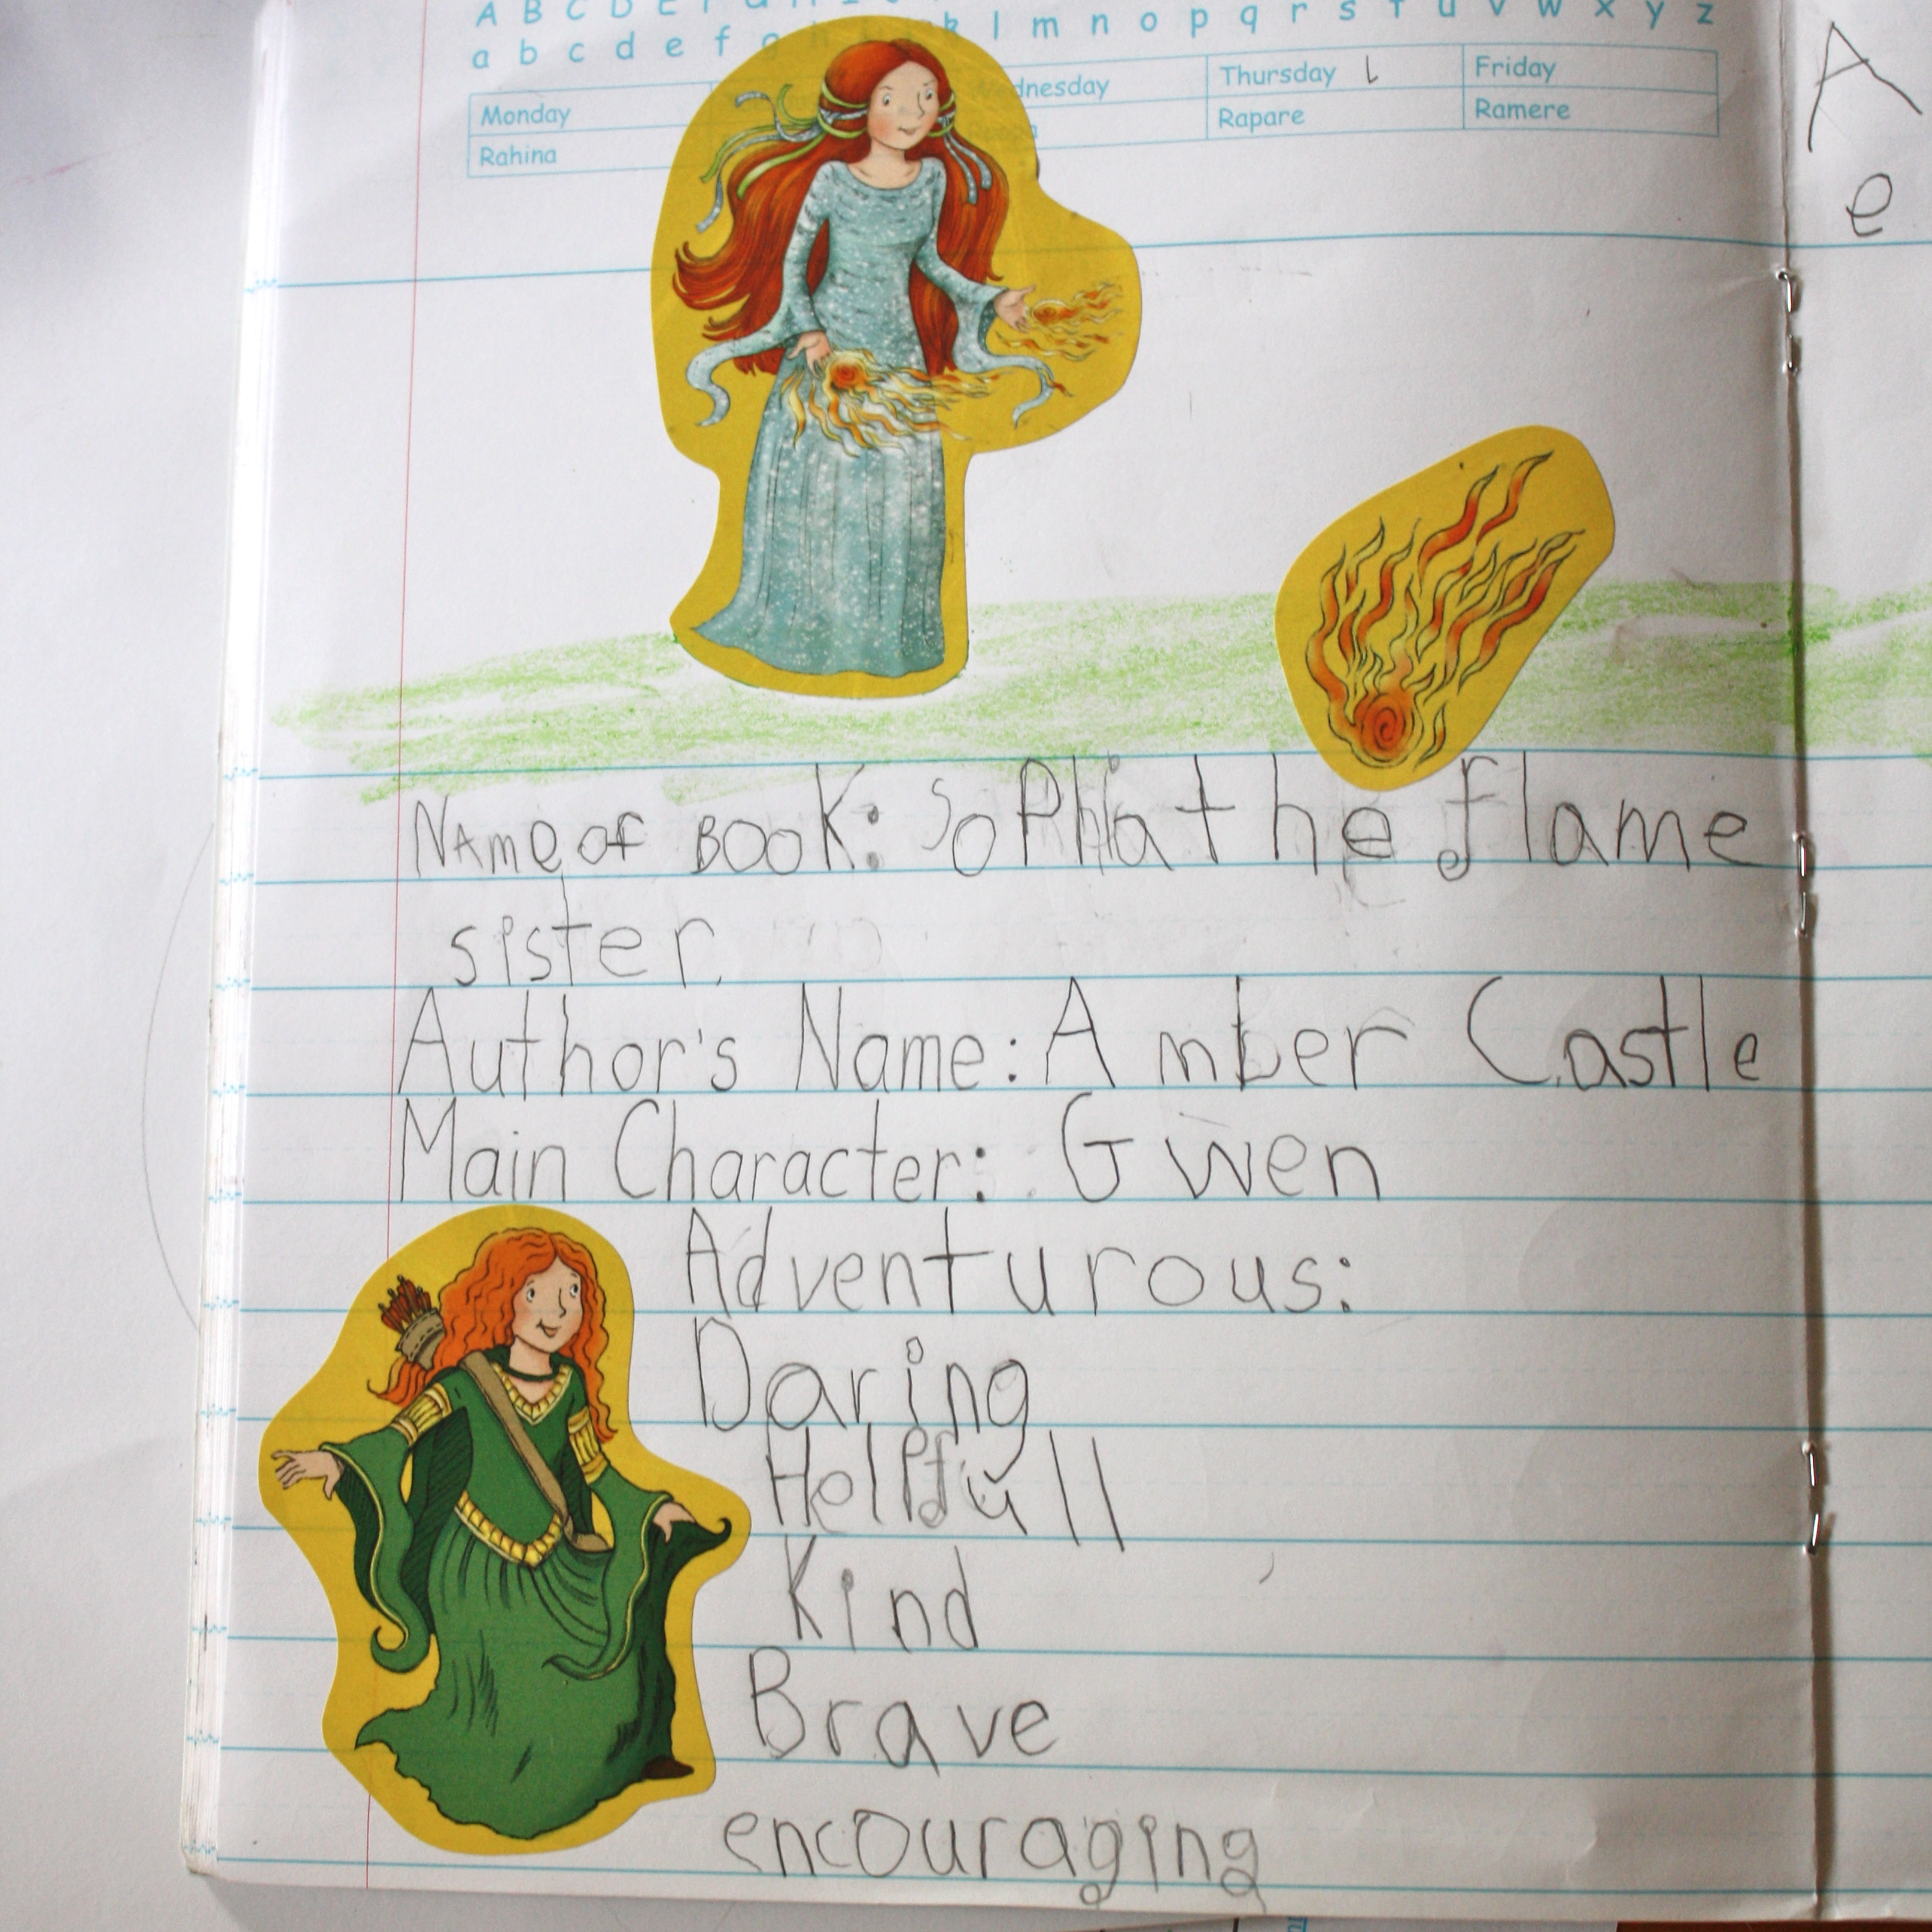 A B C D E
a b c d e f g h k l m n o p q r s t u v w x y z
Monday Wednesday Thursday L Friday
Rahina Rapare Ramere
A
e
Name of Book: Sophia the flame
sister.
Author's Name: Amber Castle
Main Character: Gwen
Adventurous:
Daring
Helpfull
Kind
Brave
encouraging